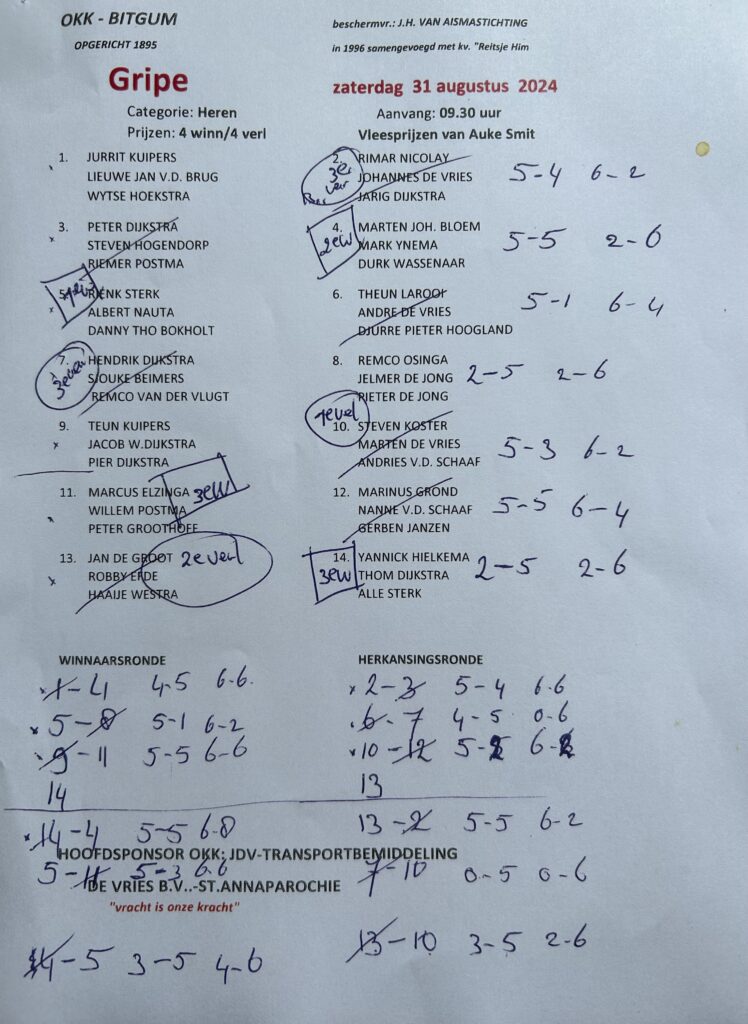 OKK - BITGUM
OPGERICHT 1895
beschermvr.: J.H. VAN AISMASTICHTING
in 1996 samengevoegd met kv. "Reitsje Him
Gripe
zaterdag 31 augustus 2024
Categorie: Heren
Aanvang: 09.30 uur
Prijzen: 4 winn/4 verl
Vleesprijzen van Auke Smit
1. JURRIT KUIPERS
LIEUWE JAN V.D. BRUG
WYTSE HOEKSTRA
2. RIMAR NICOLAY
JOHANNES DE VRIES
JARIG DIJKSTRA
3e
5-4 6-2
3. PETER DIJKSTRA
STEVEN HOGENDORP
RIEMER POSTMA
4. MARTEN JOH. BLOEM
MARK YNEMA
DURK WASSENAAR
2ew
5-5 2-6
5. RIENK STERK
ALBERT NAUTA
DANNY THO BOKHOLT
6. THEUN LAROOI
ANDRE DE VRIES
DJURRE PIETER HOOGLAND
5-1 6-4
7. HENDRIK DIJKSTRA
SJOUKE BEIMERS
REMCO VAN DER VLUGT
8. REMCO OSINGA
JELMER DE JONG
PIETER DE JONG
2-5 2-6
9. TEUN KUIPERS
JACOB W.DIJKSTRA
PIER DIJKSTRA
1evel
10. STEVEN KOSTER
MARTEN DE VRIES
ANDRIES V.D. SCHAAF
5-3 6-2
11. MARCUS ELZINGA
WILLEM POSTMA
PETER GROOTHOFF
3ew
12. MARINUS GROND
NANNE V.D. SCHAAF
GERBEN JANZEN
5-5 6-4
13. JAN DE GROOT
ROBBY EFDE
HAAIJE WESTRA
2e verl
14. YANNICK HIELKEMA
THOM DIJKSTRA
ALLE STERK
3ew
2-5 2-6
WINNAARSRONDE
1-4 4-5 6-6
5-8 5-1 6-2
9-11 5-5 6-6
14
14-4 5-5 6-8
5-11 5-3 6.6
14-5 3-5 4-6
HERKANSINGSRONDE
2-3 5-4 6-6
6-7 4-5 0-6
10-12 5-2 6-2
13
13-2 5-5 6-2
7-10 0-5 0-6
13-10 3-5 2-6
HOOFDSPONSOR OKK: JDV-TRANSPORTBEMIDDELING
DE VRIES B.V..-ST.ANNAPAROCHIE
"vracht is onze kracht"